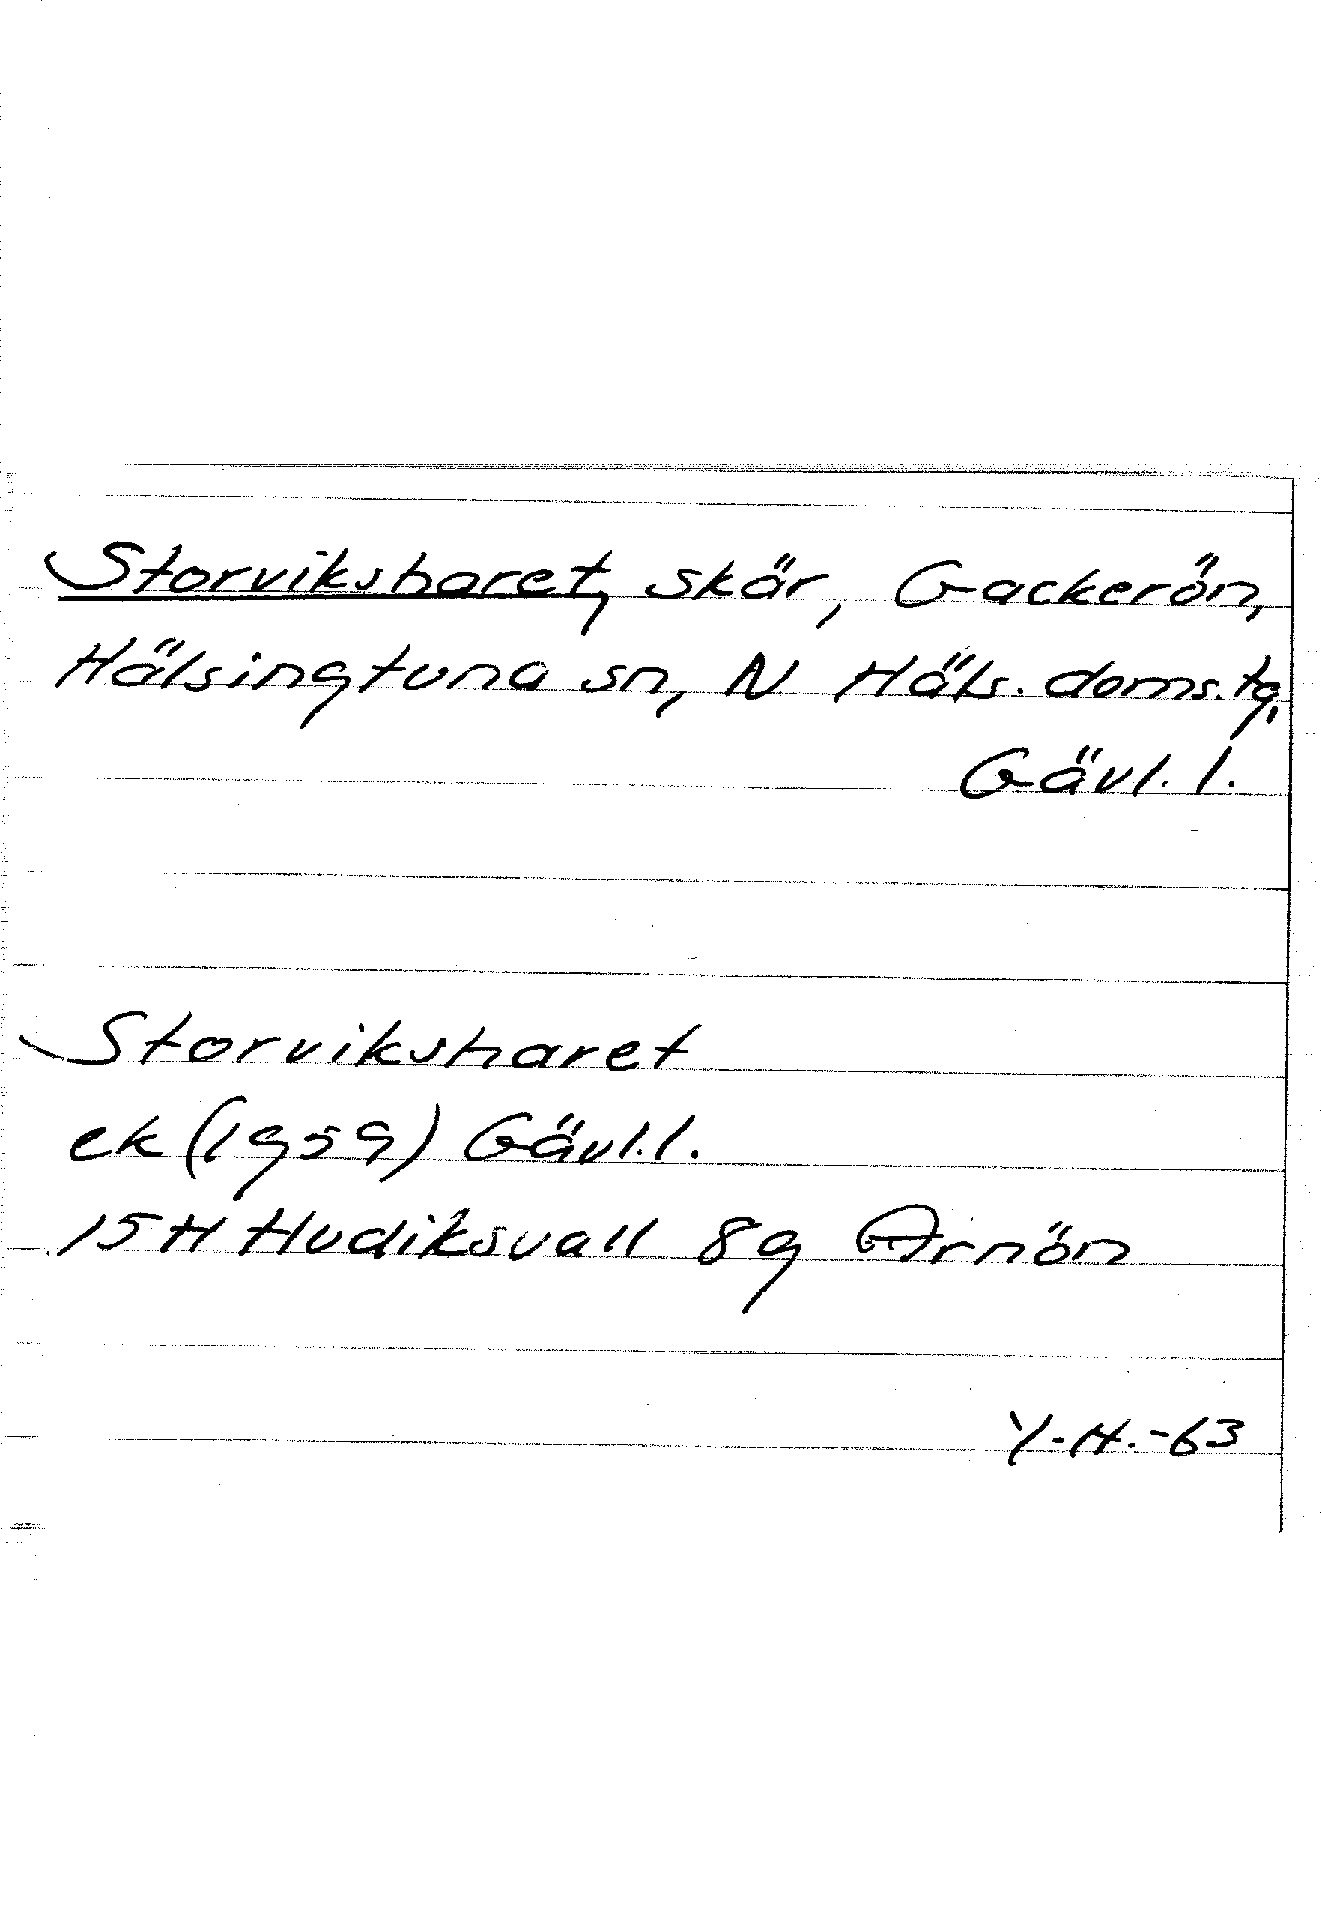 Storviksharet, skär, Gackerön,
Hälsingtuna sn, N Häls. doms.tg,
Gävl. l.
Storviksharet
ek (1959) Gävl. l.
15 H Hudiksvall 8g Arnön
Y.H.-63